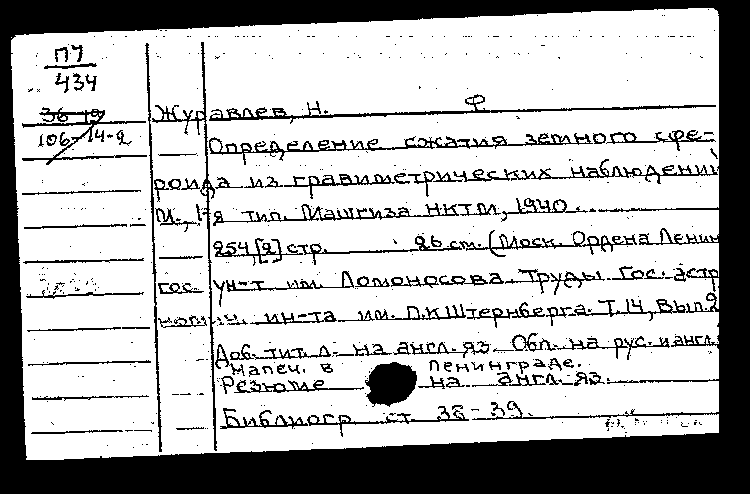 ПУ
434
36-19
106-14-2
Журавлев, Н. Ф
Определение сжатия земного сфе-
роида из гравиметрических наблюдений
М., 1-я тип. Машгиза НКТМ, 1940.
254,[2] стр. 26 см. (Моск. Ордена Ленин
гос. ун-т им. Ломоносова. Труды Гос. астр
номич. ин-та им. П.К Штернберга. Т. 14, Вып. 2
Доб. тит. л. на англ. яз. Обл. на рус. и англ.
Напеч. в Ленинграде.
Резюме на англ. яз.
Библиогр ст. 38-39.